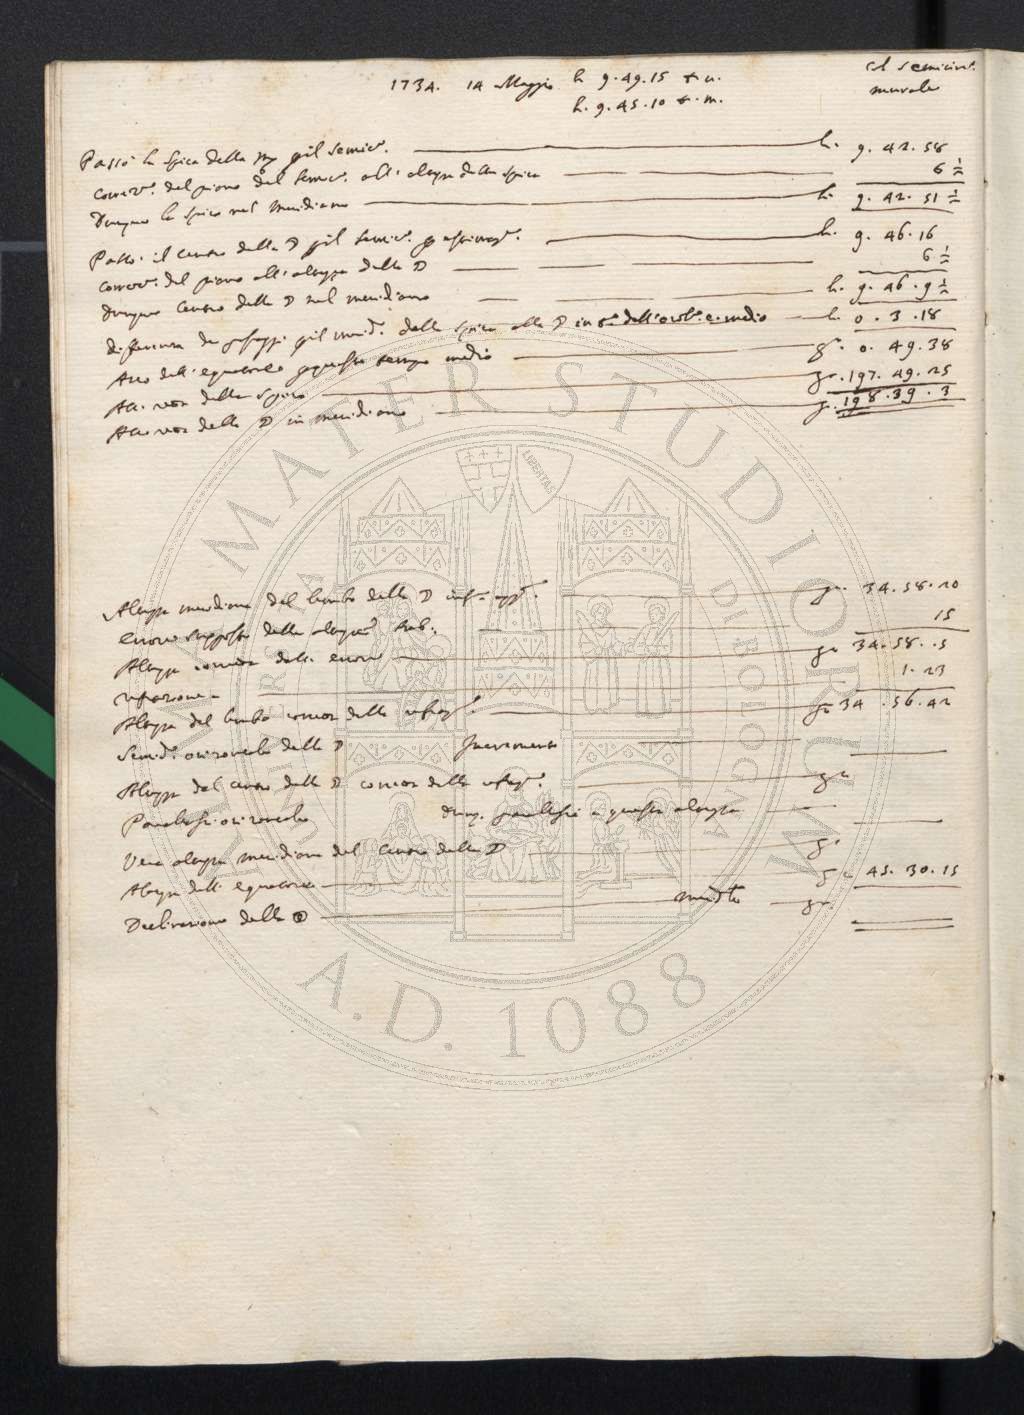 1734. 14 Maggio h 9.49.15 t. u.
h. 9.45.10 t. m.
col semicirc.
murale
Passò la spica della ♍ pel semic. h. 9.42.58
Correz. del piano del semic. all'altezza della spica 6 1/2
Dunque la spica nel meridiano h. 9.42.51 1/2
Passò il centro della ☽ pel semic. h. 9.46.16
Correz. del piano all'altezza della ☽ 6 1/2
Dunque centro della ☽ nel meridiano h. 9.46.9 1/2
differenza de passaggi pel merid. della spica alla ☽ in t. dell'orol. e medio h. 0.3.18
Arco dell'equatore per questo tempo medio gr. 0.49.38
A. retta della spica gr. 197.49.25
A. retta della ☽ in meridiano gr. 198.39.3
Altezza meridiana del lembo della ☽ inf. app. gr. 34.58.20
Errore supposto della 15
Altezza corretta dall'errore gr. 34.58.5
refrazione 1.23
Altezza del lembo corretta dalla refraz. gr 34.56.42
Semid. orizontale della ☽ Incremento
Altezza del centro della ☽ corretta dalla refraz. gr
Paralassi orizontale Dunq. paralassi a questa altezza
Vera altezza meridiana del centro della ☽ gr
Altezza dell'equatore gr 45.30.15
Declinazione della ☽ gr.
ALMA MATER STUDIORUM
UNIVERSITÀ DI BOLOGNA
LIBERTAS
A.D. 1088